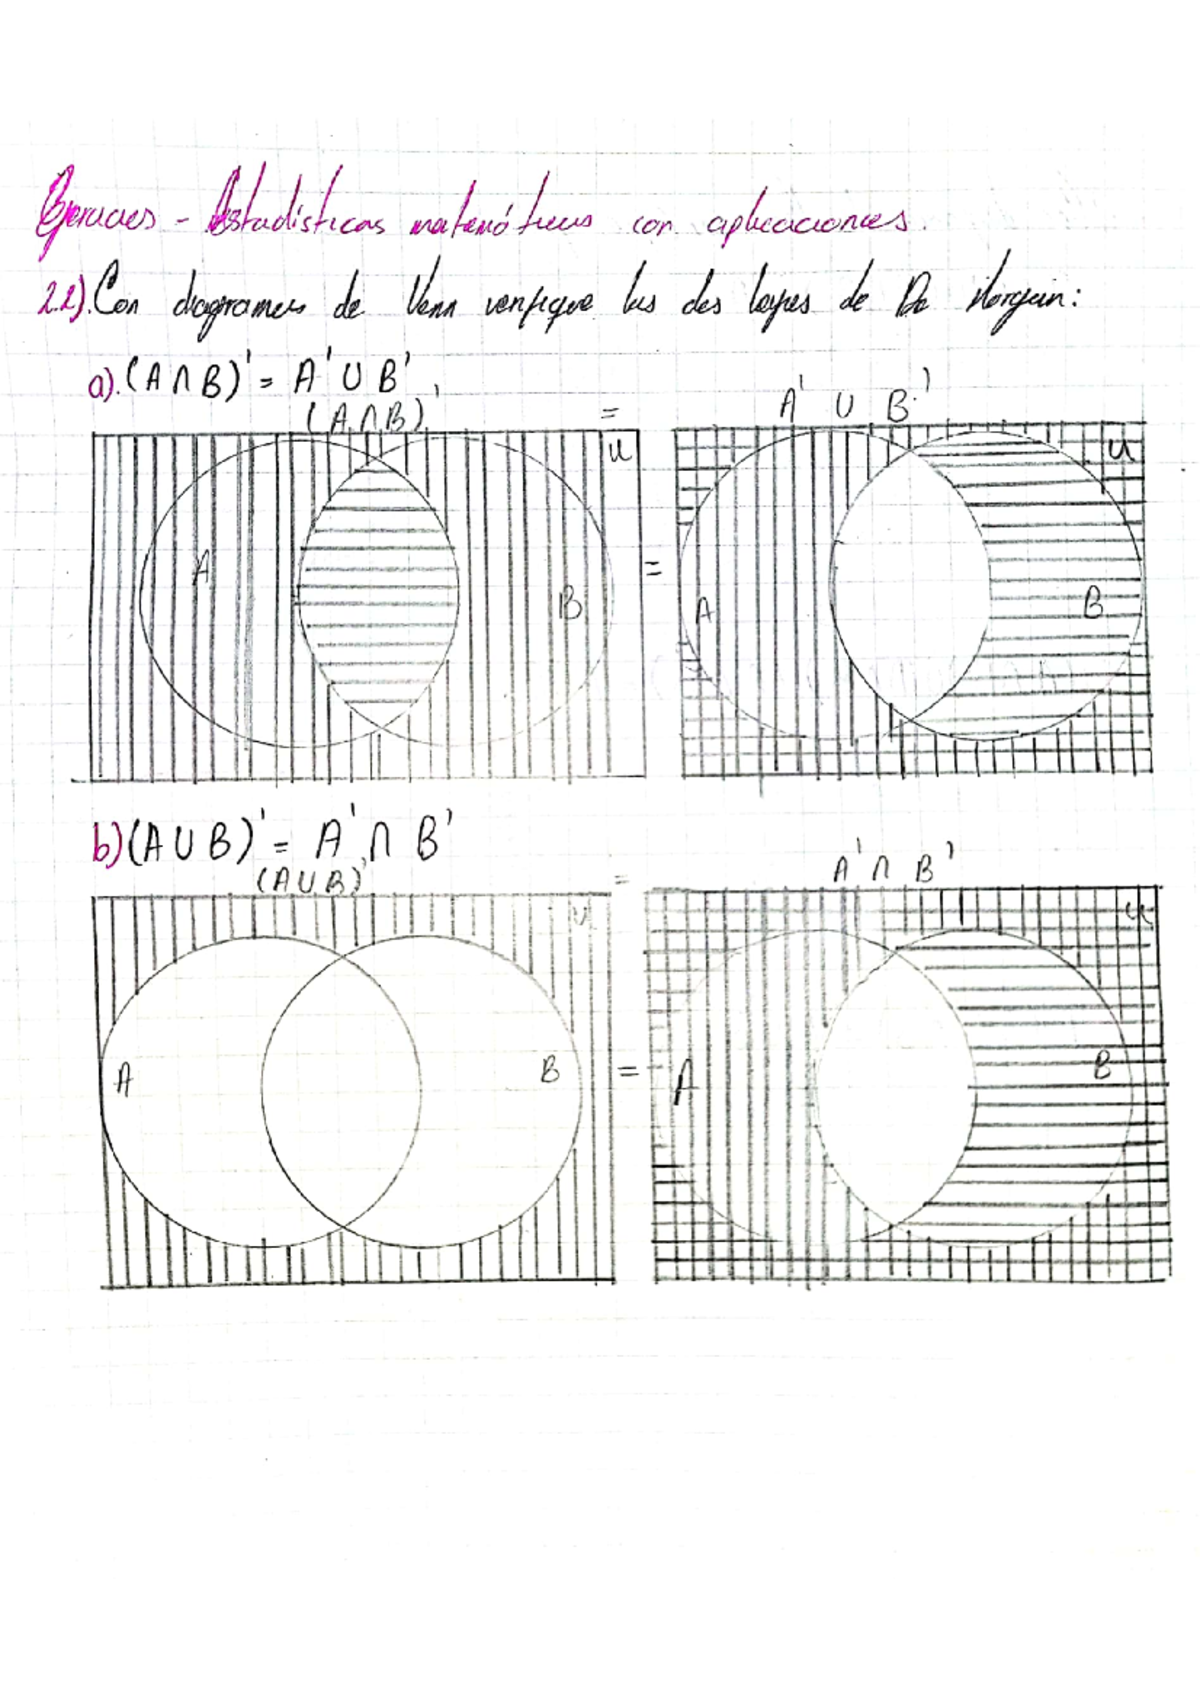 Ejercicios - Estadísticas matemáticas con aplicaciones.
2.2). Con diagramas de Venn verifique las dos leyes de De Morgan:
a). (A∩B)' = A' ∪ B'
(A∩B)' = A' ∪ B'
U U
A B = A B
b) (A∪B)' = A' ∩ B'
(A∪B)' = A' ∩ B'
U U
A B = A B